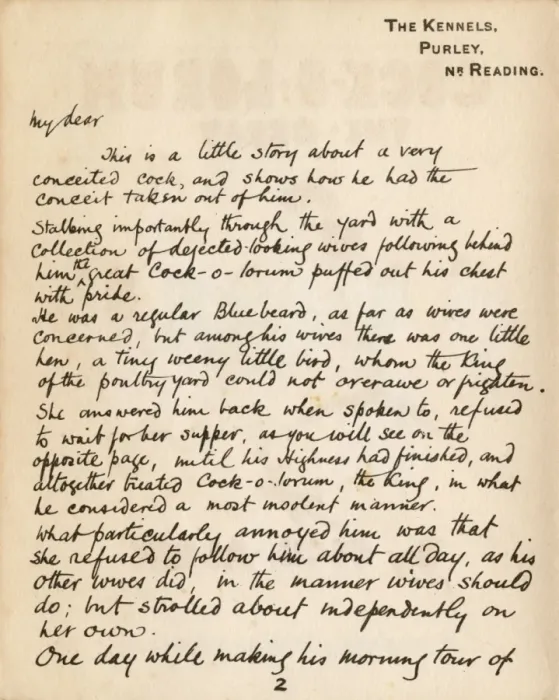 THE KENNELS,
PURLEY,
NR READING.
My dear
This is a little story about a very
conceited cock, and shows how he had the
conceit taken out of him.
Stalking importantly through the yard with a
collection of dejected-looking wives following behind
him the great Cock-o-lorum puffed out his chest
with pride.
He was a regular Bluebeard, as far as wives were
concerned, but among his wives there was one little
hen, a tiny weeny little bird, whom the King
of the poultry yard could not overawe or frighten.
She answered him back when spoken to, refused
to wait for her supper, as you will see on the
opposite page, until his Highness had finished, and
altogether treated Cock-o-lorum, the King, in what
he considered a most insolent manner.
What particularly annoyed him was that
she refused to follow him about all day, as his
other wives did, in the manner wives should
do; but strolled about independently on
her own.
One day while making his morning tour of
2